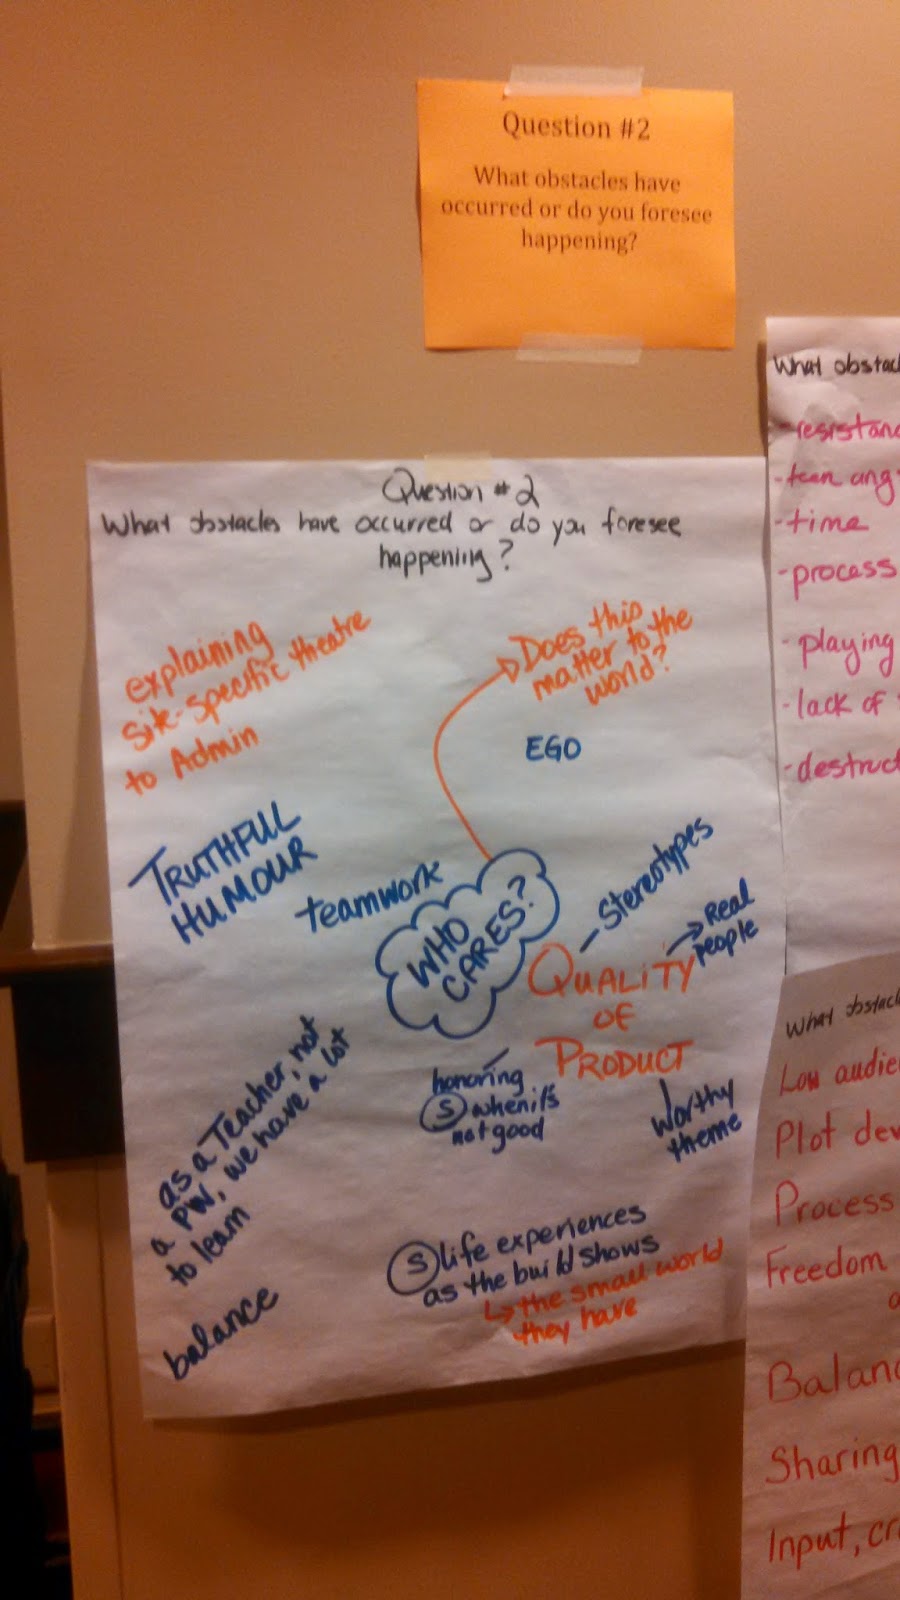 Question #2
What obstacles have
occurred or do you foresee
happening?
Question #2
What obstacles have occurred or do you foresee
happening?
explaining
site-specific theatre
to Admin
Does this
matter to the
world?
EGO
TRUTHFUL
HUMOUR
teamwork
WHO
CARES?
Stereotypes
Real
people
QUALITY
OF
PRODUCT
honoring
S when it's
not good
worthy
theme
as a Teacher, not
a PW, we have a lot
to learn
S life experiences
as the build shows
the small world
they have
balance
What
- teen
- time
- process
- playing
- lack of
What
Low
Plot
Process
Freedom
Sharing
Input,